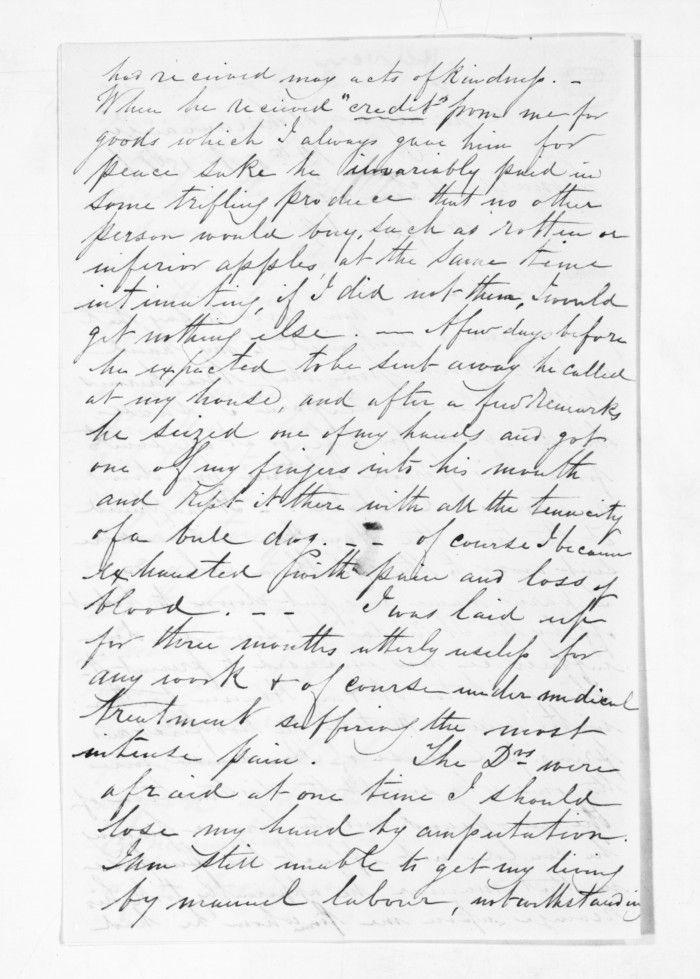 had received may acts of kindness. -
When he received "credit" from me for
goods which I always gave him for
peace sake he invariably paid in
some trifling produce that no other
person would buy, such as rotten or
inferior apples, at the same time
intimating, if I did not them, I would
get nothing else. — A few days before
he expected to be sent away he called
at my house, and after a few remarks
he seized one of my hands and got
one of my fingers into his mouth
and kept it there with all the tenacity
of a bule dog. - - of course I became
exhausted with pain and loss of
blood. - - I was laid up
for three months utterly useless for
any work & of course under medical
treatment suffering the most
intense pain. The Drs were
afraid at one time I should
lose my hand by amputation.
I am still unable to get my living
by manuel labour, notwithstanding